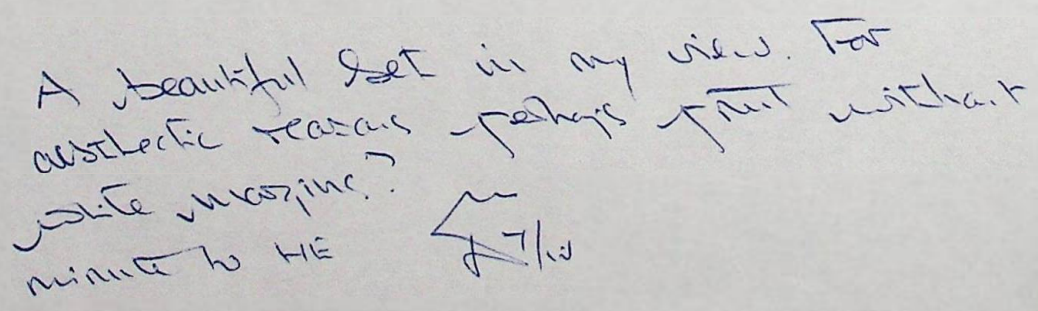 A beautiful set in my view. For
aesthetic reasons perhaps print without
white margins?
minute to HE 7/10